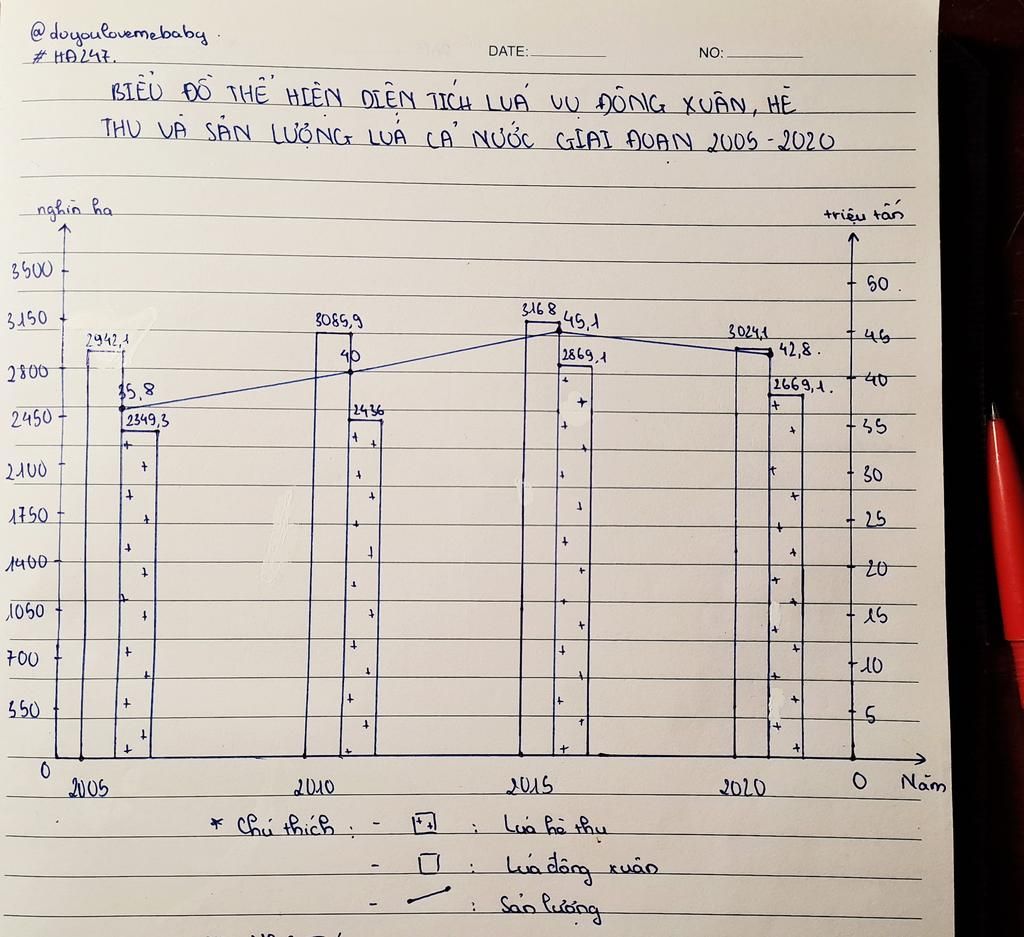 @doyoulovemebaby.
# HA247.
DATE: NO:
BIỂU ĐỒ THỂ HIỆN DIỆN TÍCH LUÁ VỤ ĐÔNG XUÂN, HÈ
THU VÀ SẢN LƯỢNG LUÁ CẢ NƯỚC GIAI ĐOAN 2005-2020
nghìn ha
triệu tấn
3500
50.
3168
45,1
3150
3085,9
45
2942,1
3024,1
42,8.
40
2869,1
2800
40
35,8
2669,1.
2450
2349,3
2436
35
2100
30
1750
25
1400
20
1050
15
700
10
350
5
0
2005 2010 2015 2020 0 Năm
* Chú thích: - ++ : Luá hè thu
- : Luá đông xuân
- : Sản lượng